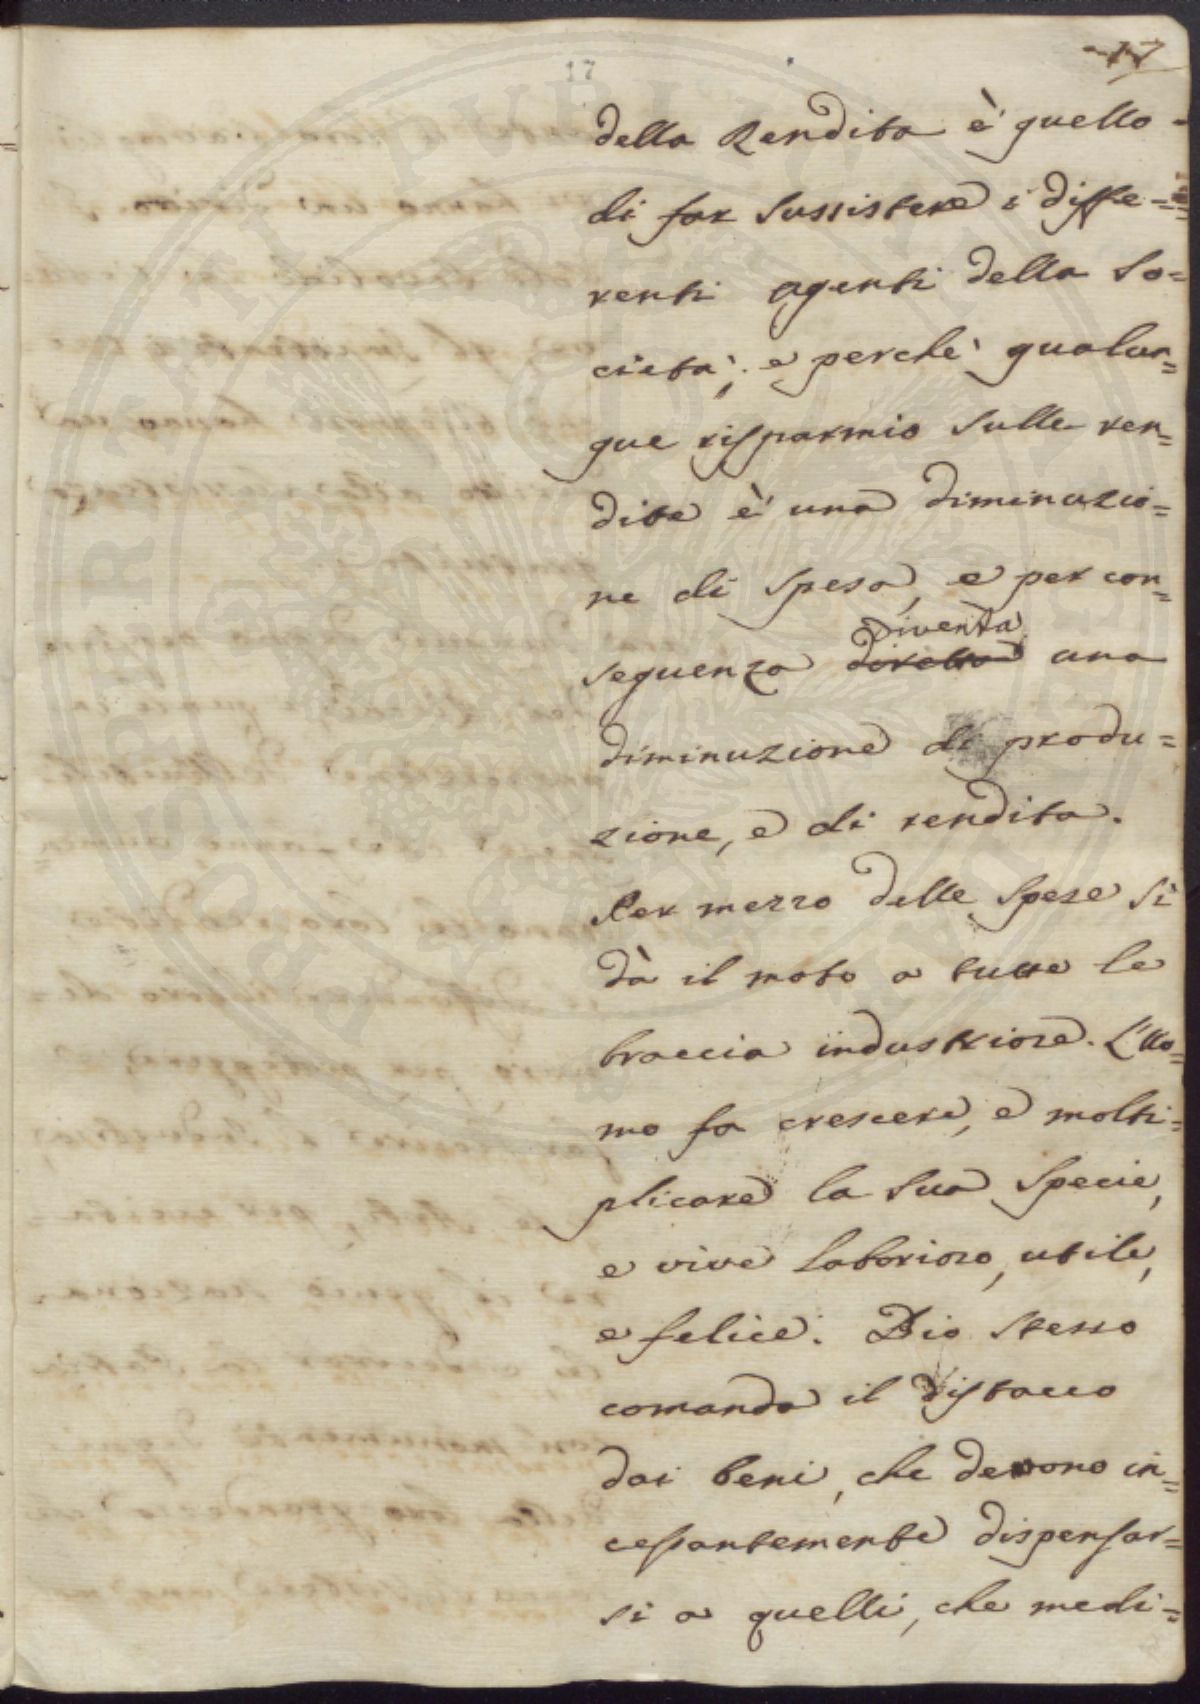 17
17
della Rendita è quello
di far sussistere i diffe=
renti agenti della So=
cietà; e perchè qualun=
que risparmio sulle ren=
dite è una diminuzio=
ne di spesa, e per con=
diventa
seguenza una
diminuzione di produ=
zione, e di rendita.
Per mezzo delle spese si
dà il moto a tutte le
braccia industriose. L'Uo=
mo fa crescere, e molti=
plicare la sua specie,
e vive laborioso, utile,
e felice. Dio stesso
comanda il distacco
dai beni, che devono in=
cessantemente dispensar=
si a quelli, che medi=